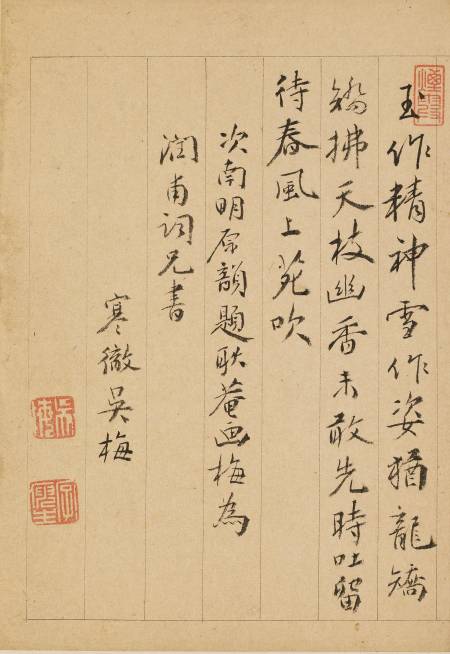 玉作精神雪作姿猶龍矯
矯拂天枝幽香未敢先時吐留
待春風上苑吹
次南明原韻題耿菴画梅為
潤甫詞兄書
寒徹吳梅